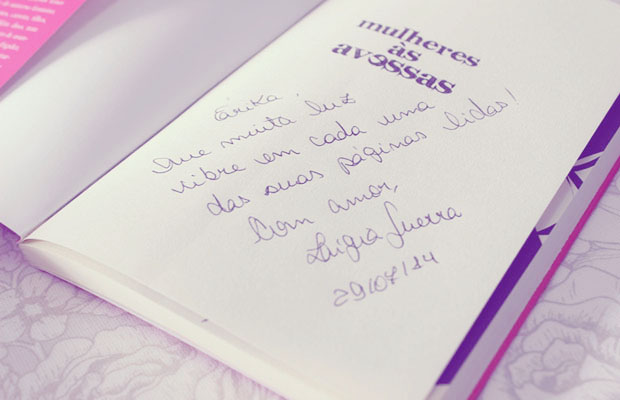 mulheres
às
avessas
Érika,
Que muita luz
vibre em cada uma
das suas páginas lidas!
Com amor,
Lígia Guerra
29/07/14